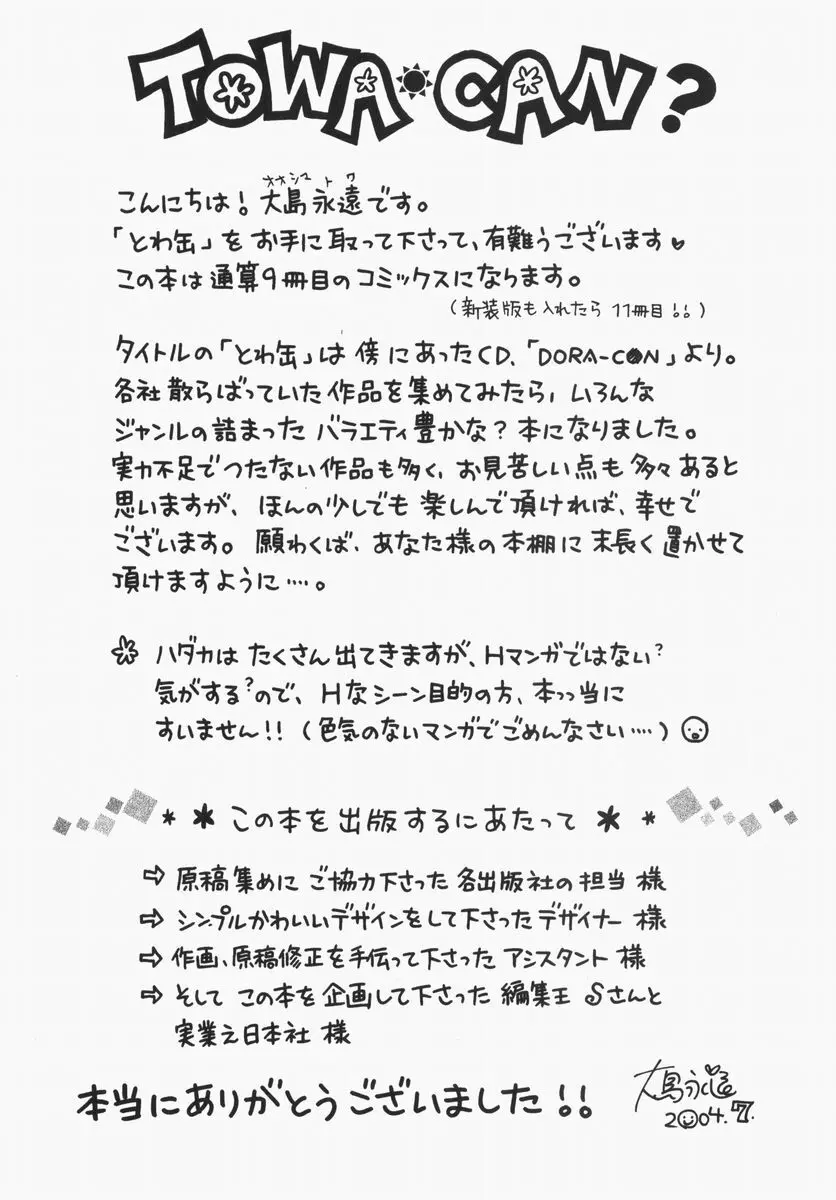 TOWA・CAN?
こんにちは! 大島永遠です。
オオシマ トワ
「とわ缶」をお手に取って下さって、有難うございます♥
この本は通算9冊目のコミックスにならます。
(新装版も入れたら 11冊目!!)
タイトルの「とわ缶」は傍にあったCD、「DORA-CON」より。
各社散らばっていた作品を集めてみたら、いろんな
ジャンルの詰まった バラエティ豊かな? 本になりました。
実力不足でつたない作品も多く、お見苦しい点も多々あると
思いますが、ほんの少しでも楽しんで頂ければ、幸せで
ございます。願わくば、あなた様の本棚に末長く置かせて
頂けますように…。
ハダカは たくさん出てきますが、Hマンガではない?
気がする?ので、Hなシーン目的の方、本っ当に
すいません!!(色気のないマンガでごめんなさい…)
* * この本を出版するにあたって * *
⇨ 原稿集めに ご協力下さった 各出版社の担当 様
⇨ シンプルかわいいデザインをして下さった デザイナー 様
⇨ 作画、原稿修正を手伝って下さった アシスタント 様
⇨ そして この本を企画して下さった 編集王 Sさんと
実業之日本社 様
本当にありがとうございました!!
大島永遠
2004.7.